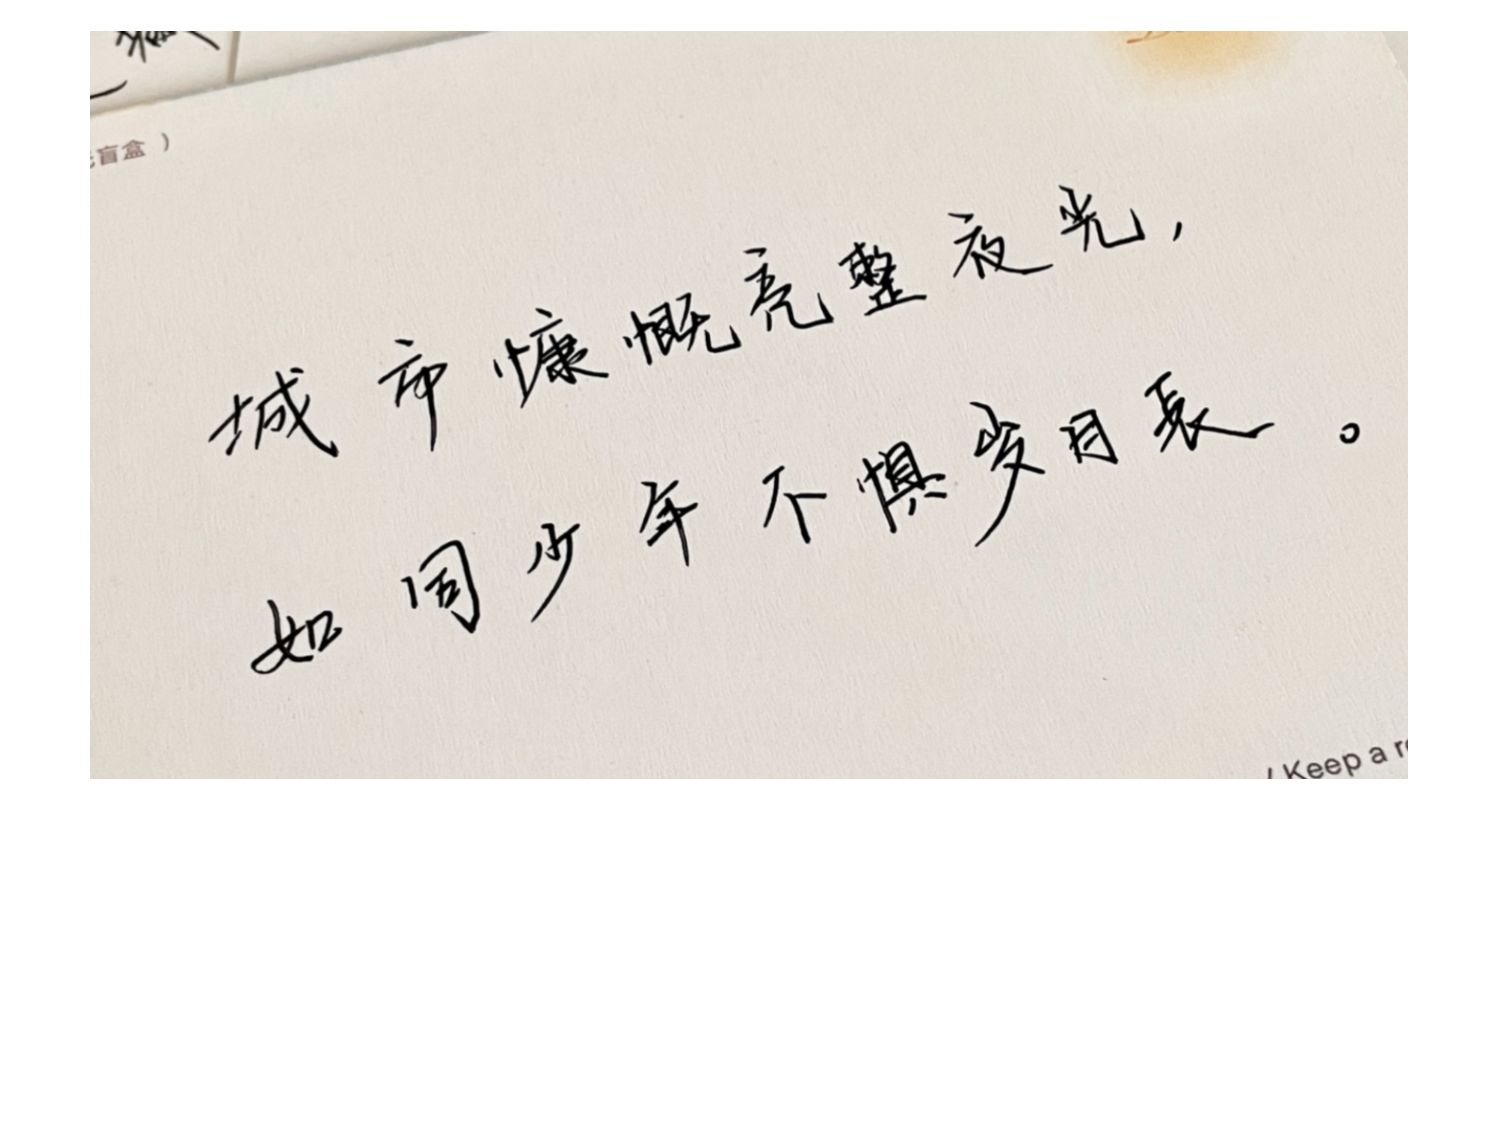 盲盒 )
城市慷慨亮整夜光，
如同少年不惧岁月长。
/ Keep a